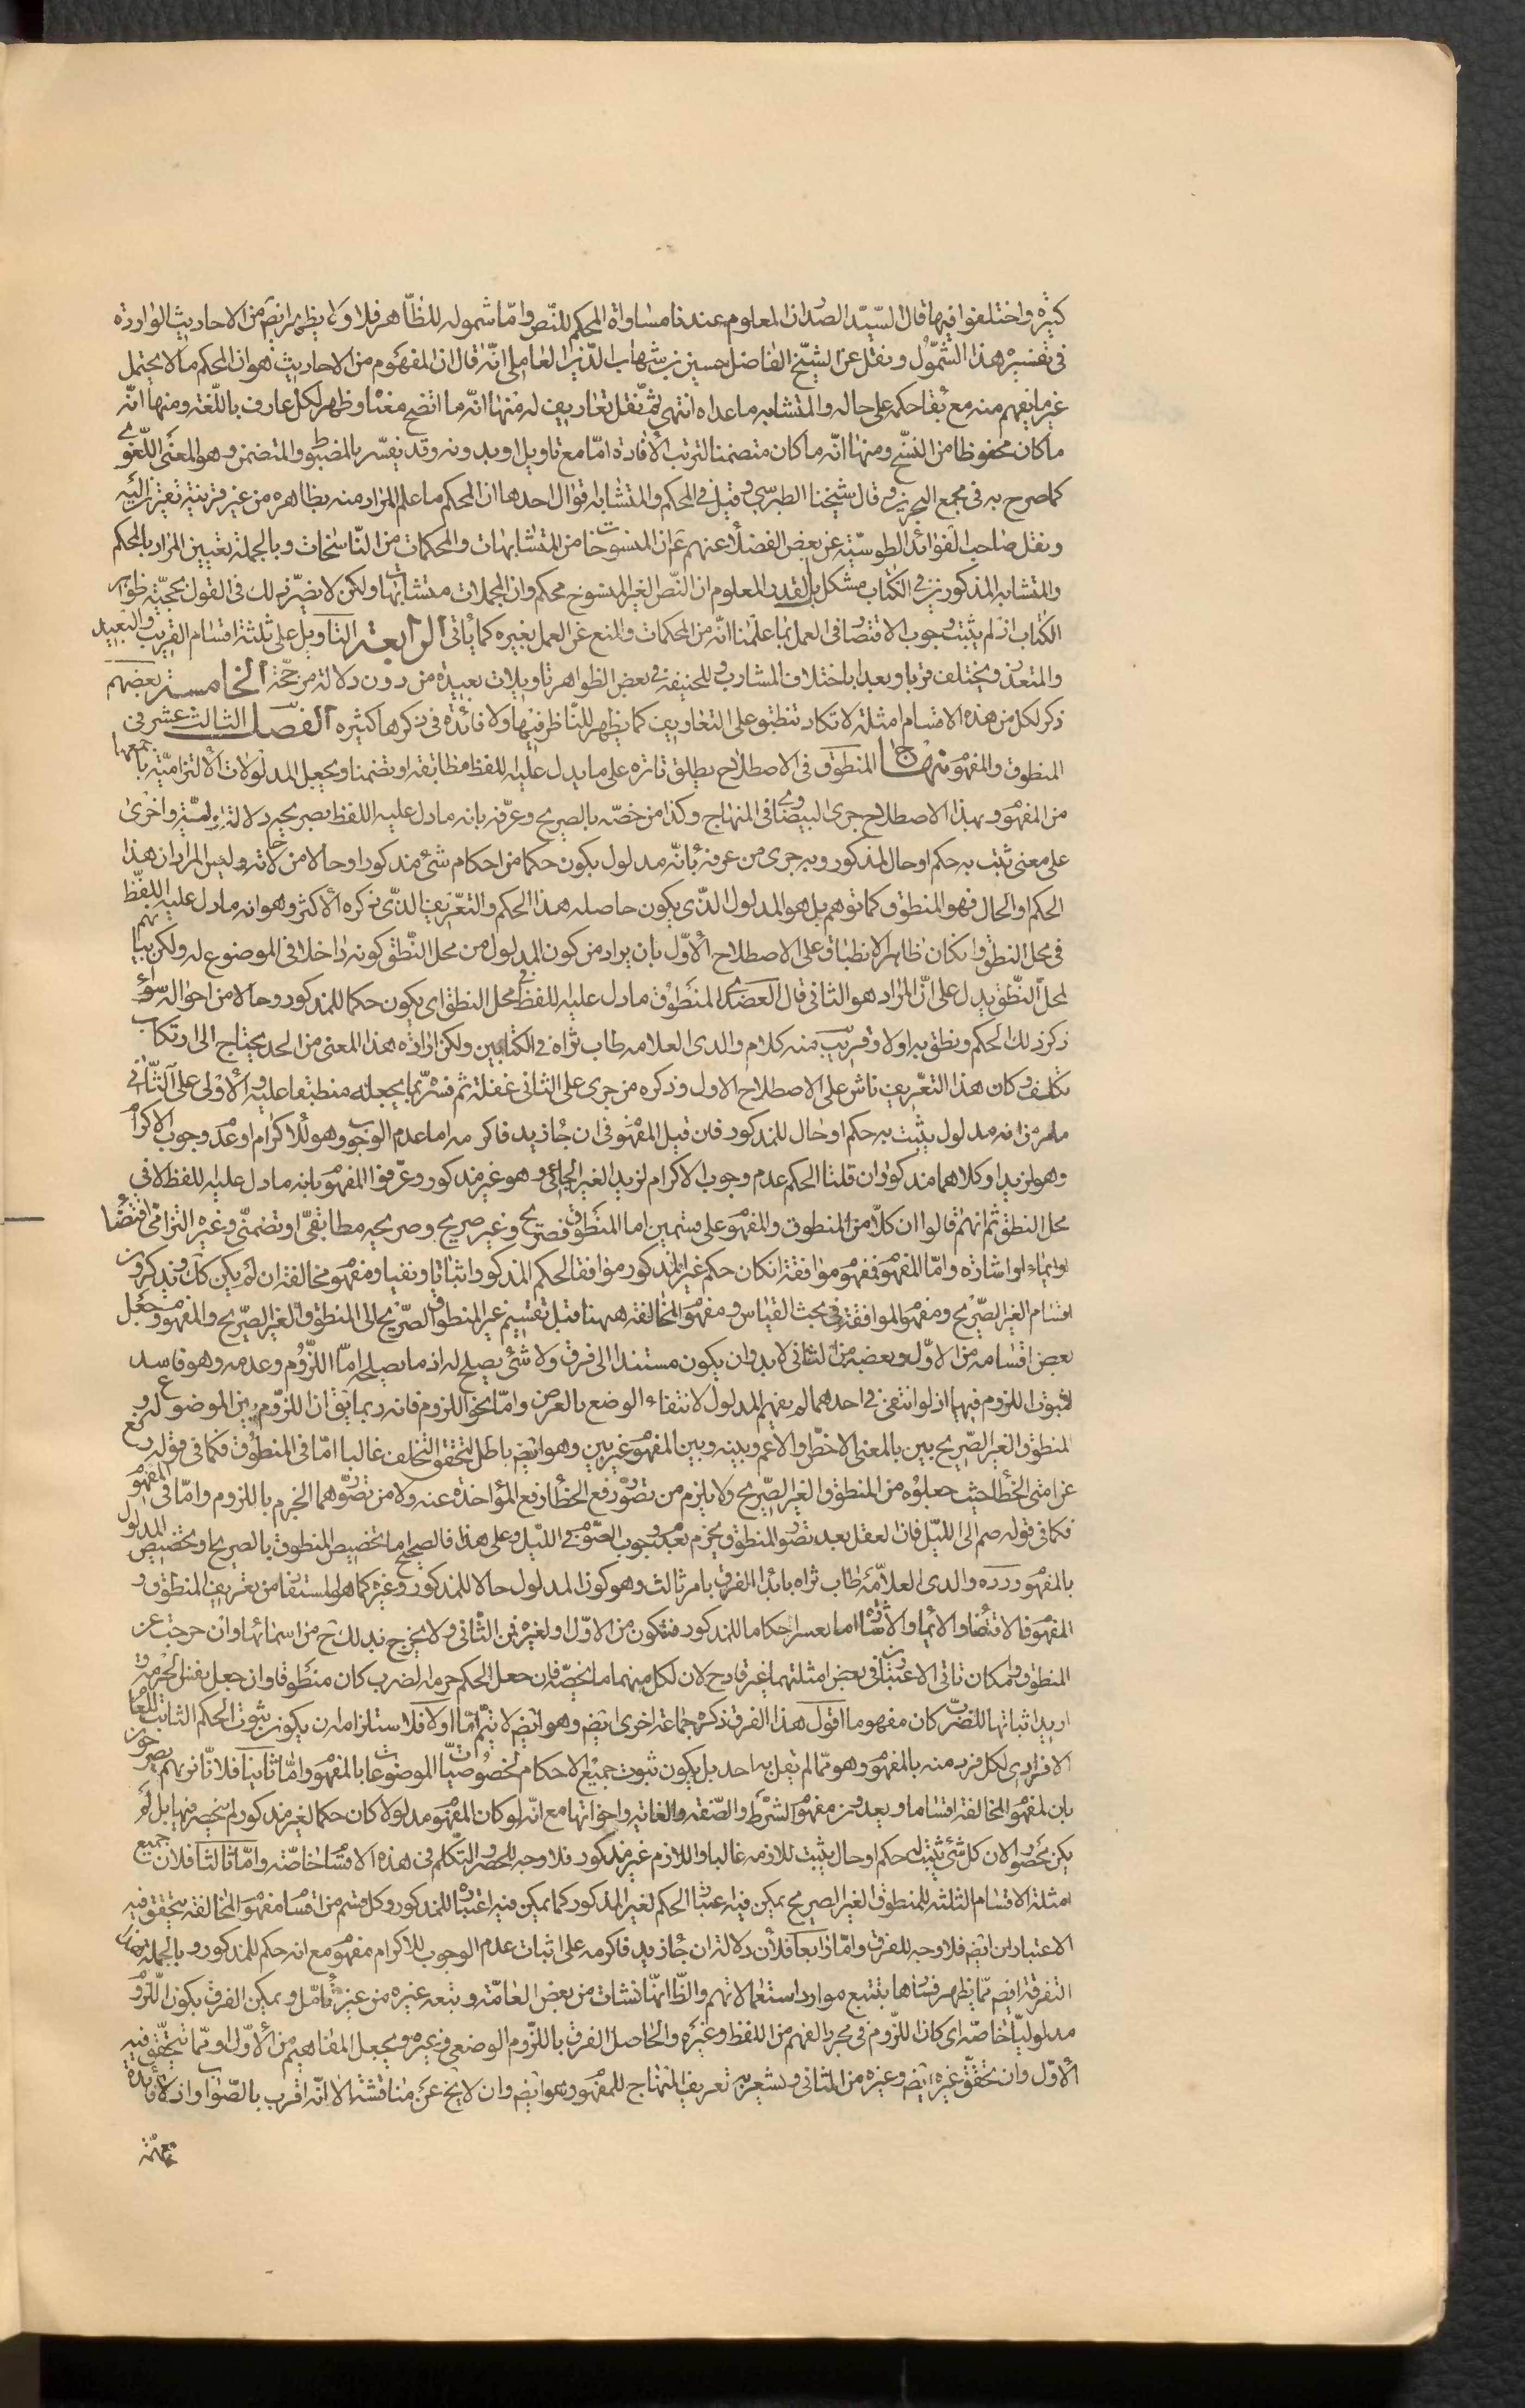 كثيره واختلفوا فيها قال السيّد الصّدر ان المعلوم عندنا مساواة المحكم للنّص وامّا شموله للظّاهر فلا ولا يظهر ايضَ من الاحاديث الواردة
فى تفسيره هذا الشّمول ونقل عن الشيّخ الفاضل حسين بن شهاب الدّين العاملى انّه قال ان المفهوم من الاحاديث هو ان المحكم ما لا يحتمل
غير ما يفهم منه مع بقا حكمه على حاله والمتشابه ما عداه انتهى ثمّ نقل تعاريف له منها انّه ما اتضح معناه وظهر لكل عارف باللّغة ومنها انّه
ما كان محفوظا من النسّخ ومنها انّه ما كان متضمنا لترتب الأفادة امّا مع تاويل او بدونه وقد يفسّر بالمضبوط والمتضمن وهو المعنى اللّغوى
كما صرح به فى مجمع البحرين وقال شيخنا الطبرسى وقيل فى المحكم والمتشابه اقوال احدها ان المحكم ما علم المراد منه بظاهره من غير قرينة تقترن اليه
ونقل صاحب الفوائد الطوسيّة عن بعض الفضلا عنهم عَ ان المنسوخات من المتشابهات والمحكمات من النّاسخات وبالجملة تعيين المراد بالمحكم
والمتشابه المذكورين فى الكتاب مشكل بل القدر المعلوم ان النّص الغير المنسوخ محكم وان المجملات متشابهات ولكن لا يضرّ ذلك فى القول بحجيّة ظواهر
الكتاب اذ لم يثبت وجوب الاقتصار فى العمل بما علمنا انّه من المحكمات والمنع عن العمل بغيره كما يأتى الرابعة التاويل على ثلثة اقسام القريب والبعيد
والمتعذر ويختلف قربا وبعدا باختلاف المشارب وللحنيفة فى بعض الظواهر تاويلات بعيدة من دون دلالة من حجّة الخامسة بعضهم
ذكر لكل من هذه الاقسام امثلة لا تكاد تنطبق على التعاريف كما يظهر للنّاظر فيها ولا فائدة فى ذكرها كثيره الفصل الثالث عشر فى
المنطوق والمفهوم منهاج المنطوق فى الاصطلاح يطلق تارة على ما يدل عليه اللفظ مطابقه او تضمنا ويجعل المدلولات الألتزاميّة باجمعها
من المفهوم وبهذا الاصطلاح جرى البيضاوى فى المنهاج وكذا من خصّه بالصريح وعرّفه بانه ما دل عليه اللفظ بصريحه دلالة اوليّة واخرى
على معنى يثبت به حكم او حال لمذكور وبه جرى من عرفه بأنّه مدلول يكون حكما من احكام شئ مذكور او حالا من حالاته وليس المراد ان هذا
الحكم او الحال فهو المنطوق كما توهم بل هو المدلول الذّى يكون حاصله هذا الحكم والتعّريف الذّى ذكره الأكثر وهو انه ما دل عليه اللفظّ
فى محل النطق وان كان ظاهر الانطباق على الاصطلاح الأوّل بان يراد من كون المدلول من محل النّطق كونه داخلا فى الموضوع له ولكن بيانهم
لمحلّ النّطق يدل على انّ المراد هو الثانى قال العضدى المنطوق ما دل عليه اللفظ فى محل النطق اى يكون حكما للمذكور وحالا من احواله سوآء
ذكر ذلك الحكم ونطق به او لا وقريب منه كلام والدى العلامه طاب ثراه فى الكتابين ولكن ارادة هذا المعنى من الحد يحتاج الى ارتكاب
تكلف وكان هذا التعّريف ناش على الاصطلاح الاول وذكره من جرى على الثانى غفلة ثم فسّر بما يجعله منطبقا عليه والأولى على الثّانى
ما مر من انه مدلول يثبت به حكم او حال للمذكور فان قيل المفهوم فى ان جاء زيد فاكرمه اما عدم الوجوب وهو للاكرام او عدم وجوب الاكرام
وهو لزيد او كلاهما مذكور وان قلنا الحكم عدم وجوب الاكرام لزيد الغير الجائى وهو غير مذكور وعرّفوا المفهوم بانه ما دل عليه اللفظ لا فى
محل النطق ثم انهم قالوا ان كلّا من المنطوق والمفهوم على قسمين اما المنطوق فصريح وغير صريح وصريحه مطابقىّ او تضمنّى وغيره التزامى اقتضاء
او ايماء او اشارة وامّا المفهوم فمفهوم موافقة ان كان حكم غير المذكور موافقا لحكم المذكور اثباتا ونفيا ومفهوم مخالفة ان لم يكن كك ويذكرون
اقسام الغير الصّريح ومفهوم الموافقة فى بحث القياس ومفهوم المخالفة ههنا قيل تقسيم غير المنطوق الصّريح الى المنطوق الغير الصّريح والمفهوم وجعل
بعض اقسامه من الاوّل وبعضه من الثانى لا بد وان يكون مستندا الى فرق ولا شئ يصلح له اذ ما يصلح له امّا اللّزوم وعدمه وهو فاسد
لثبوت اللزوم فيهما اذ لو انتفى فى احدهما لم يفهم المدلول لانتفاء الوضع بالعرض وامّا نحو اللزوم فانه ربما يقَ ان اللزّوم بين الموضوع له و
المنطوق الغير الصّريح بين بالمعنى الاخصّ او الاعم وبينه وبين المفهوم غير بين وهو ايضَ باطل لتحقق التّخلف غالبا امّا فى المنطوق فكما فى قوله رفع
عن امتى الخطأ حيث جعلوه من المنطوق الغير الصّريح ولا يلزم من تصوّر رفع الخطأ رفع المؤاخذة عنه ولا من تصوّرهما الجزم باللزوم وامّا فى المفهوم
فكما فى قوله صم الى اللّيل فان العقل بعد تصور المنطوق يجزم بعدم وجوب الصّوم فى اللّيل وعلى هذا فالصحيح اما تخصيص المنطوق بالصريح او تخصيص المدلول
بالمفهوم ورده والدى العلاّمة طاب ثراه بابداء الفرق بامر ثالث وهو كون المدلول حالا للمذكور وغيره كما هو المستفاد من تعريف المنطوق و
المفهوم فالاقتضاء والأيماء والأشارة اما احكاما للمذكور فتكون من الاوّل او لغيره فمن الثّانى ولا يخرج بذلك ح من اسمائها وان خرجت عن
المنطوق وامكان تاتى الاعتبارين فى بعض امثلتهما غير قادح لان لكل منهما ما يخصّه فان جعل الحكم حرمة الضرب كان منطوقا وان جعل نفس الحرمة و
اريد اثباتها للضرب كان مفهوما اقول هذا الفرق ذكره جماعة اخرى ايضَ وهو ايضَ لا يتمّ امّا اولا فلاستلزامه ان يكون ثبوت الحكم الثابت للعام
الافرادى لكل فرد منه بالمفهوم وهو ممّا لم يقل به احد بل يكون ثبوت جميع الاحكام لخصوصيّات الموضوعات بالمفهوم وامّا ثانيا فلانّا نريهم يصرحون
بان لمفهوم المخالفة اقساما ويعدون مفهوم الشرط والصّفة والغاية واخواتها مع انّه لو كان المفهوم مدلولا كان حكما لغير مذكور لم ينحصر فيها بل لم
يكن محصورا لان كل شئ يثبت له حكم او حال يثبت للازمه غالبا واللازم غير مذكور فلا وجه للحصر والتّكلم فى هذه الاقسام خاصّة وامّا ثالثا فلان جميع
امثلة الاقسام الثلثه للمنطوق الغير الصريح يمكن فيه اعتبار الحكم لغير المذكور كما يمكن فيه اعتباره للمذكور وكل قسم من اقسام مفهوم المخالفة يتحقق فيه
الاعتباران ايضَ فلا وجه للفرق وامّا رابعا فلأن دلالة ان جاء زيد فاكرمه على اثبات عدم الوجوب للاكرام مفهوم مع انه حكم للمذكور وبالجملة هذه
التفرقة ايضَ ممّا يظهر فسادها بتتبع موارد استعمالاتهم والظّاهر انّها نشات من بعض العامّة وتبعه غيره من غير تأمّل ويمكن الفرق بكون الّلزوم
مدلوليّا خاصّة اى كان اللّزوم فى مجرد الفهم من اللفظ وغيره والحاصل الفرق باللّزوم الوضعى وغيره ويجعل المفاهيم من الأوّل او ممّا يتحقق فيه
الأوّل وان تحقّق غيره ايضَ وغيره من الثانى ويشعر به تعريف المنهاج للمفهوم وهو ايضَ وان لا يخ عن مناقشة الا انّه اقرب بالصّواب واذ لا فائدة